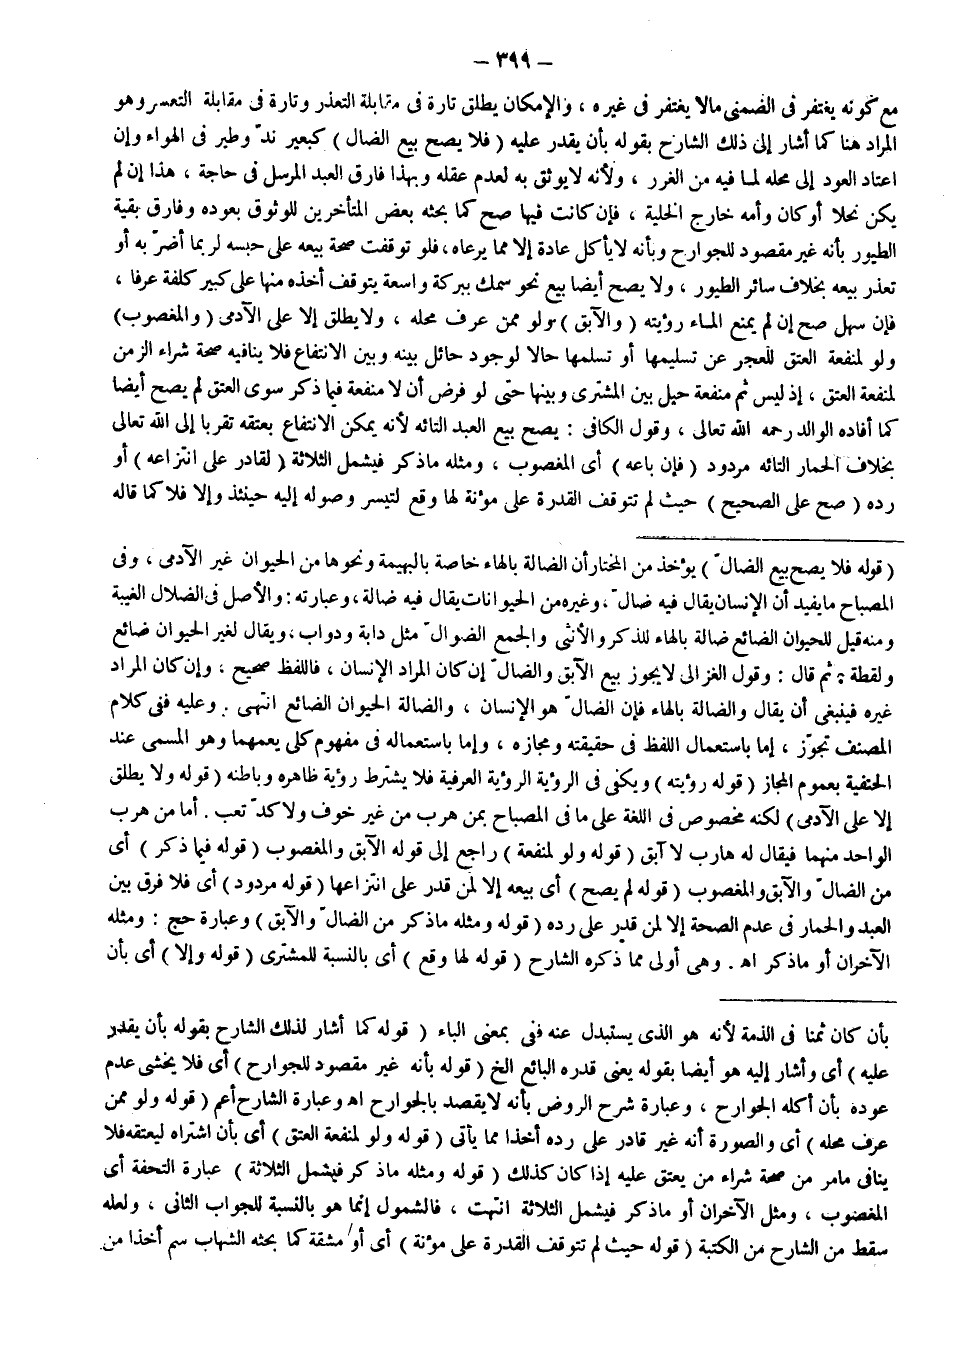 — ٣٩٩ —
مع كونه يغتفر فى الضمنى مالا يغتفر فى غيره ، والإمكان يطلق تارة فى مقابلة التعذر وتارة فى مقابلة التعسر وهو
المراد هنا كما أشار إلى ذلك الشارح بقوله بأن يقدر عليه ( فلا يصح بيع الضال ) كبعير ندّ وطير فى الهواء وإن
اعتاد العود إلى محله لما فيه من الغرر ، ولأنه لايوثق به لعدم عقله وبهذا فارق العبد المرسل فى حاجة ، هذا إن لم
يكن نحلا أو كان وأمه خارج الخلية ، فإن كانت فيها صح كما بحثه بعض المتأخرين للوثوق بعوده وفارق بقية
الطيور بأنه غير مقصود للجوارح وبأنه لايأكل عادة إلا مما يرعاه ، فلو توقفت صحة بيعه على حبسه لربما أضرّ به أو
تعذر بيعه بخلاف سائر الطيور ، ولا يصح أيضا بيع نحو سمك ببركة واسعة يتوقف أخذه منها على كبير كلفة عرفا ،
فإن سهل صح إن لم يمنع الماء رؤيته ( والآبق ) ولو ممن عرف محله ، ولا يطلق إلا على الآدمى ( والمغصوب )
ولو لمنفعة العتق للعجز عن تسليمها أو تسلمها حالا لوجود حائل بينه وبين الانتفاع فلا ينافيه صحة شراء الزمن
لمنفعة العتق ، إذ ليس ثم منفعة حيل بين المشترى وبينها حتى لو فرض أن لا منفعة فيما ذكر سوى العتق لم يصح أيضا
كما أفاده الوالد رحمه الله تعالى ، وقول الكافى : يصح بيع العبد التائه لأنه يمكن الانتفاع بعتقه تقربا إلى الله تعالى
بخلاف الحمار التائه مردود ( فإن باعه ) أى المغصوب ، ومثله ماذكر فيشمل الثلاثة ( لقادر على انتزاعه ) أو
رده ( صح على الصحيح ) حيث لم تتوقف القدرة على مؤنة لها وقع لتيسر وصوله إليه حينئذ وإلا فلا كما قاله
( قوله فلا يصح بيع الضالّ ) يؤخذ من المختار أن الضالة بالهاء خاصة بالبهيمة ونحوها من الحيوان غير الآدمى ، وفى
المصباح مايفيد أن الإنسان يقال فيه ضالّ ، وغيره من الحيوانات يقال فيه ضالة ، وعبارته : والأصل فى الضلال الغيبة
ومنه قيل للحيوان الضائع ضالة بالهاء للذكر والأنثى والجمع الضوالّ مثل دابة ودواب ، ويقال لغير الحيوان ضائع
ولقطة ، ثم قال : وقول الغزالى لايجوز بيع الآبق والضالّ إن كان المراد الإنسان ، فاللفظ صحيح ، وإن كان المراد
غيره فينبغى أن يقال والضالة بالهاء فإن الضالّ هو الإنسان ، والضالة الحيوان الضائع انتهى . وعليه ففى كلام
المصنف تجوّز ، إما باستعمال اللفظ فى حقيقته ومجازه ، وإما باستعماله فى مفهوم كلى يعمهما وهو المسمى عند
الحنفية بعموم المجاز ( قوله رؤيته ) ويكفى فى الرؤية الرؤية العرفية فلا يشترط رؤية ظاهره وباطنه ( قوله ولا يطلق
إلا على الآدمى ) لكنه مخصوص فى اللغة على مافى المصباح بمن هرب من غير خوف ولا كدّ تعب . أما من هرب
الواحد منهما فيقال له هارب لا آبق ( قوله ولو لمنفعة ) راجع إلى قوله الآبق والمغصوب ( قوله فيما ذكر ) أى
من الضالّ والآبق والمغصوب ( قوله لم يصح ) أى بيعه إلا لمن قدر على انتزاعها ( قوله مردود ) أى فلا فرق بين
العبد والحمار فى عدم الصحة إلا لمن قدر على رده ( قوله ومثله ماذكر من الضالّ والآبق ) وعبارة حج : ومثله
الآخران أو ماذكر اه . وهى أولى مما ذكره الشارح ( قوله لها وقع ) أى بالنسبة للمشترى ( قوله وإلا ) أى بأن
بأن كان ثمنا فى الذمة لأنه هو الذى يستبدل عنه ففى بمعنى الباء ( قوله كما أشار لذلك الشارح بقوله بأن يقدر
عليه ) أى وأشار إليه هو أيضا بقوله يعنى قدره البائع الخ ( قوله بأنه غير مقصود للجوارح ) أى فلا يخشى عدم
عوده بأن أكله الجوارح ، وعبارة شرح الروض بأنه لايقصد بالجوارح اه وعبارة الشارح أعم ( قوله ولو ممن
عرف محله ) أى والصورة أنه غير قادر على رده أخذا مما يأتى ( قوله ولو لمنفعة العتق ) أى بأن اشتراه ليعتقه فلا
ينافى مامر من صحة شراء من يعتق عليه إذا كان كذلك ( قوله ومثله ماذكر فيشمل الثلاثة ) عبارة التحفة أى
المغصوب ، ومثل الآخران أو ماذكر فيشمل الثلاثة انتهت ، فالشمول إنما هو بالنسبة للجواب الثانى ، ولعله
سقط من الشارح من الكتبة ( قوله حيث لم تتوقف القدرة على مؤنة ) أى أو مشقة كما بحثه الشهاب سم أخذا من